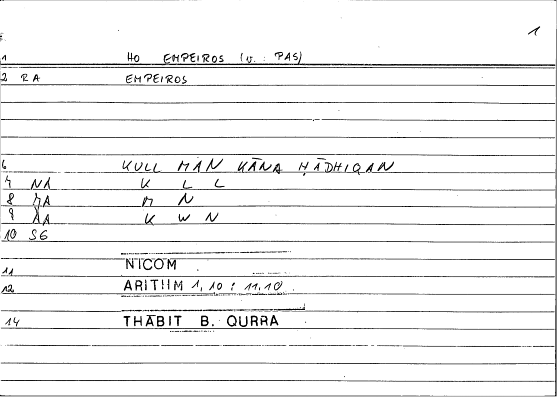 1
1 HO EMPEIROS (v. : PAS)
2 RA EMPEIROS
6 KULL MAN KĀNA ḤĀDHIQAN
7 NA K L L
8 M N
9 K W N
10 SG
11 NICOM
12 ARITHM 1, 10 : 11.10
14 THĀBIT B. QURRA